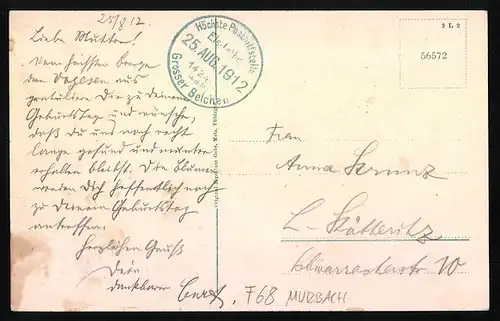 25/8 12.
Liebe Mutter!
Vom höchsten Berge
der Vogesen aus
gratuliere Dir zu deinem
Geburtstag und wünsche,
daß du uns noch recht
lange gesund und munter
erhalten bleibst. Die Blumen
werden Dich hoffentlich noch
zu Deinem Geburtstag
antreffen.
Herzlichen Gruß
Dein
dankbarer
Höchste Posthilfsstelle
25. AUG. 1912.
1424
Grosser Belchen
2 L 2
56572
Frau
Anna
L.-Stötteritz
10
F68 MURBACH